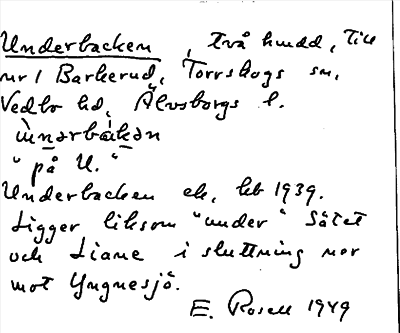 Underbacken, två hmdd, till
nr 1 Barkerud, Torrskogs sn,
Vedbo hd, Älvsborgs l.
ùnərbákən
"på U."
Underbacken ek, hb 1939.
Ligger liksom "under" Sätet
och Liane i sluttning ner
mot Yngnesjö.
E. Rosell 1949